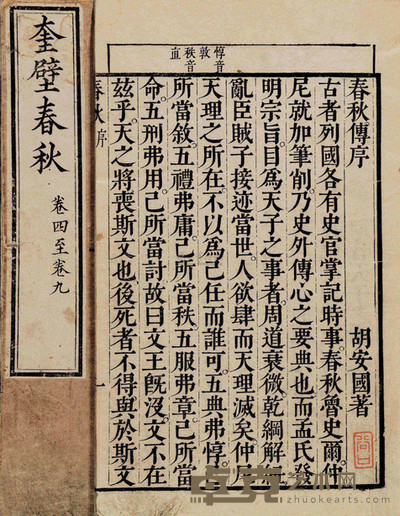 奎壁春秋
卷四至卷九
惇音
敦
秩音
直
春秋傳序
胡安國著
古者列國各有史官掌記時事春秋魯史爾仲
尼就加筆削乃史外傳心之要典也而孟氏發
明宗旨目爲天子之事者周道衰微乾綱解紐
亂臣賊子接迹當世人欲肆而天理滅矣仲尼
天理之所在不以爲己任而誰可五典弗惇己
所當敘五禮弗庸己所當秩五服弗章己所當
命五刑弗用己所當討故曰文王旣沒文不在
茲乎天之將喪斯文也後死者不得與於斯文
春秋 序
一
卓克艺术网
zhuokearts.com